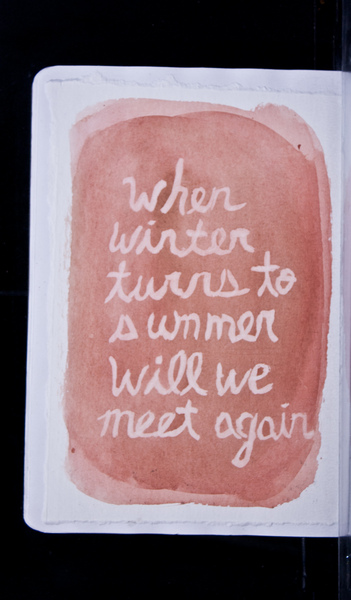 when
winter
turns to
summer
will we
meet again